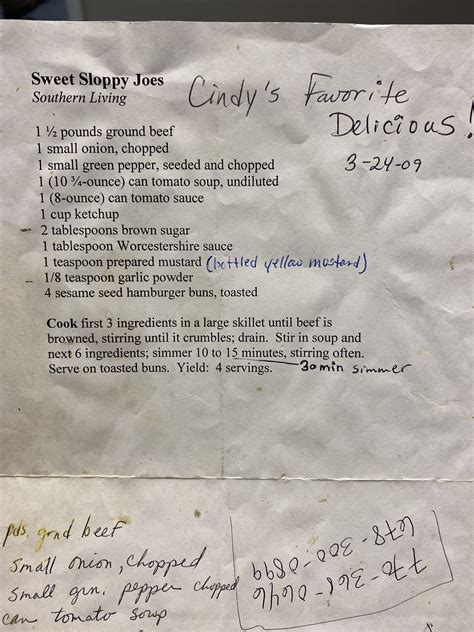 Sweet Sloppy Joes
Southern Living
Cindy's Favorite
Delicious!
3-24-09
1 ½ pounds ground beef
1 small onion, chopped
1 small green pepper, seeded and chopped
1 (10 ¾-ounce) can tomato soup, undiluted
1 (8-ounce) can tomato sauce
1 cup ketchup
2 tablespoons brown sugar
1 tablespoon Worcestershire sauce
1 teaspoon prepared mustard (bottled yellow mustard)
1/8 teaspoon garlic powder
4 sesame seed hamburger buns, toasted
Cook first 3 ingredients in a large skillet until beef is
browned, stirring until it crumbles; drain. Stir in soup and
next 6 ingredients; simmer 10 to 15 minutes, stirring often.
Serve on toasted buns. Yield: 4 servings. 30 min simmer
pds. grnd beef
small onion, chopped
small grn. pepper chopped
can tomato soup
770-361-0646
678-300-0899